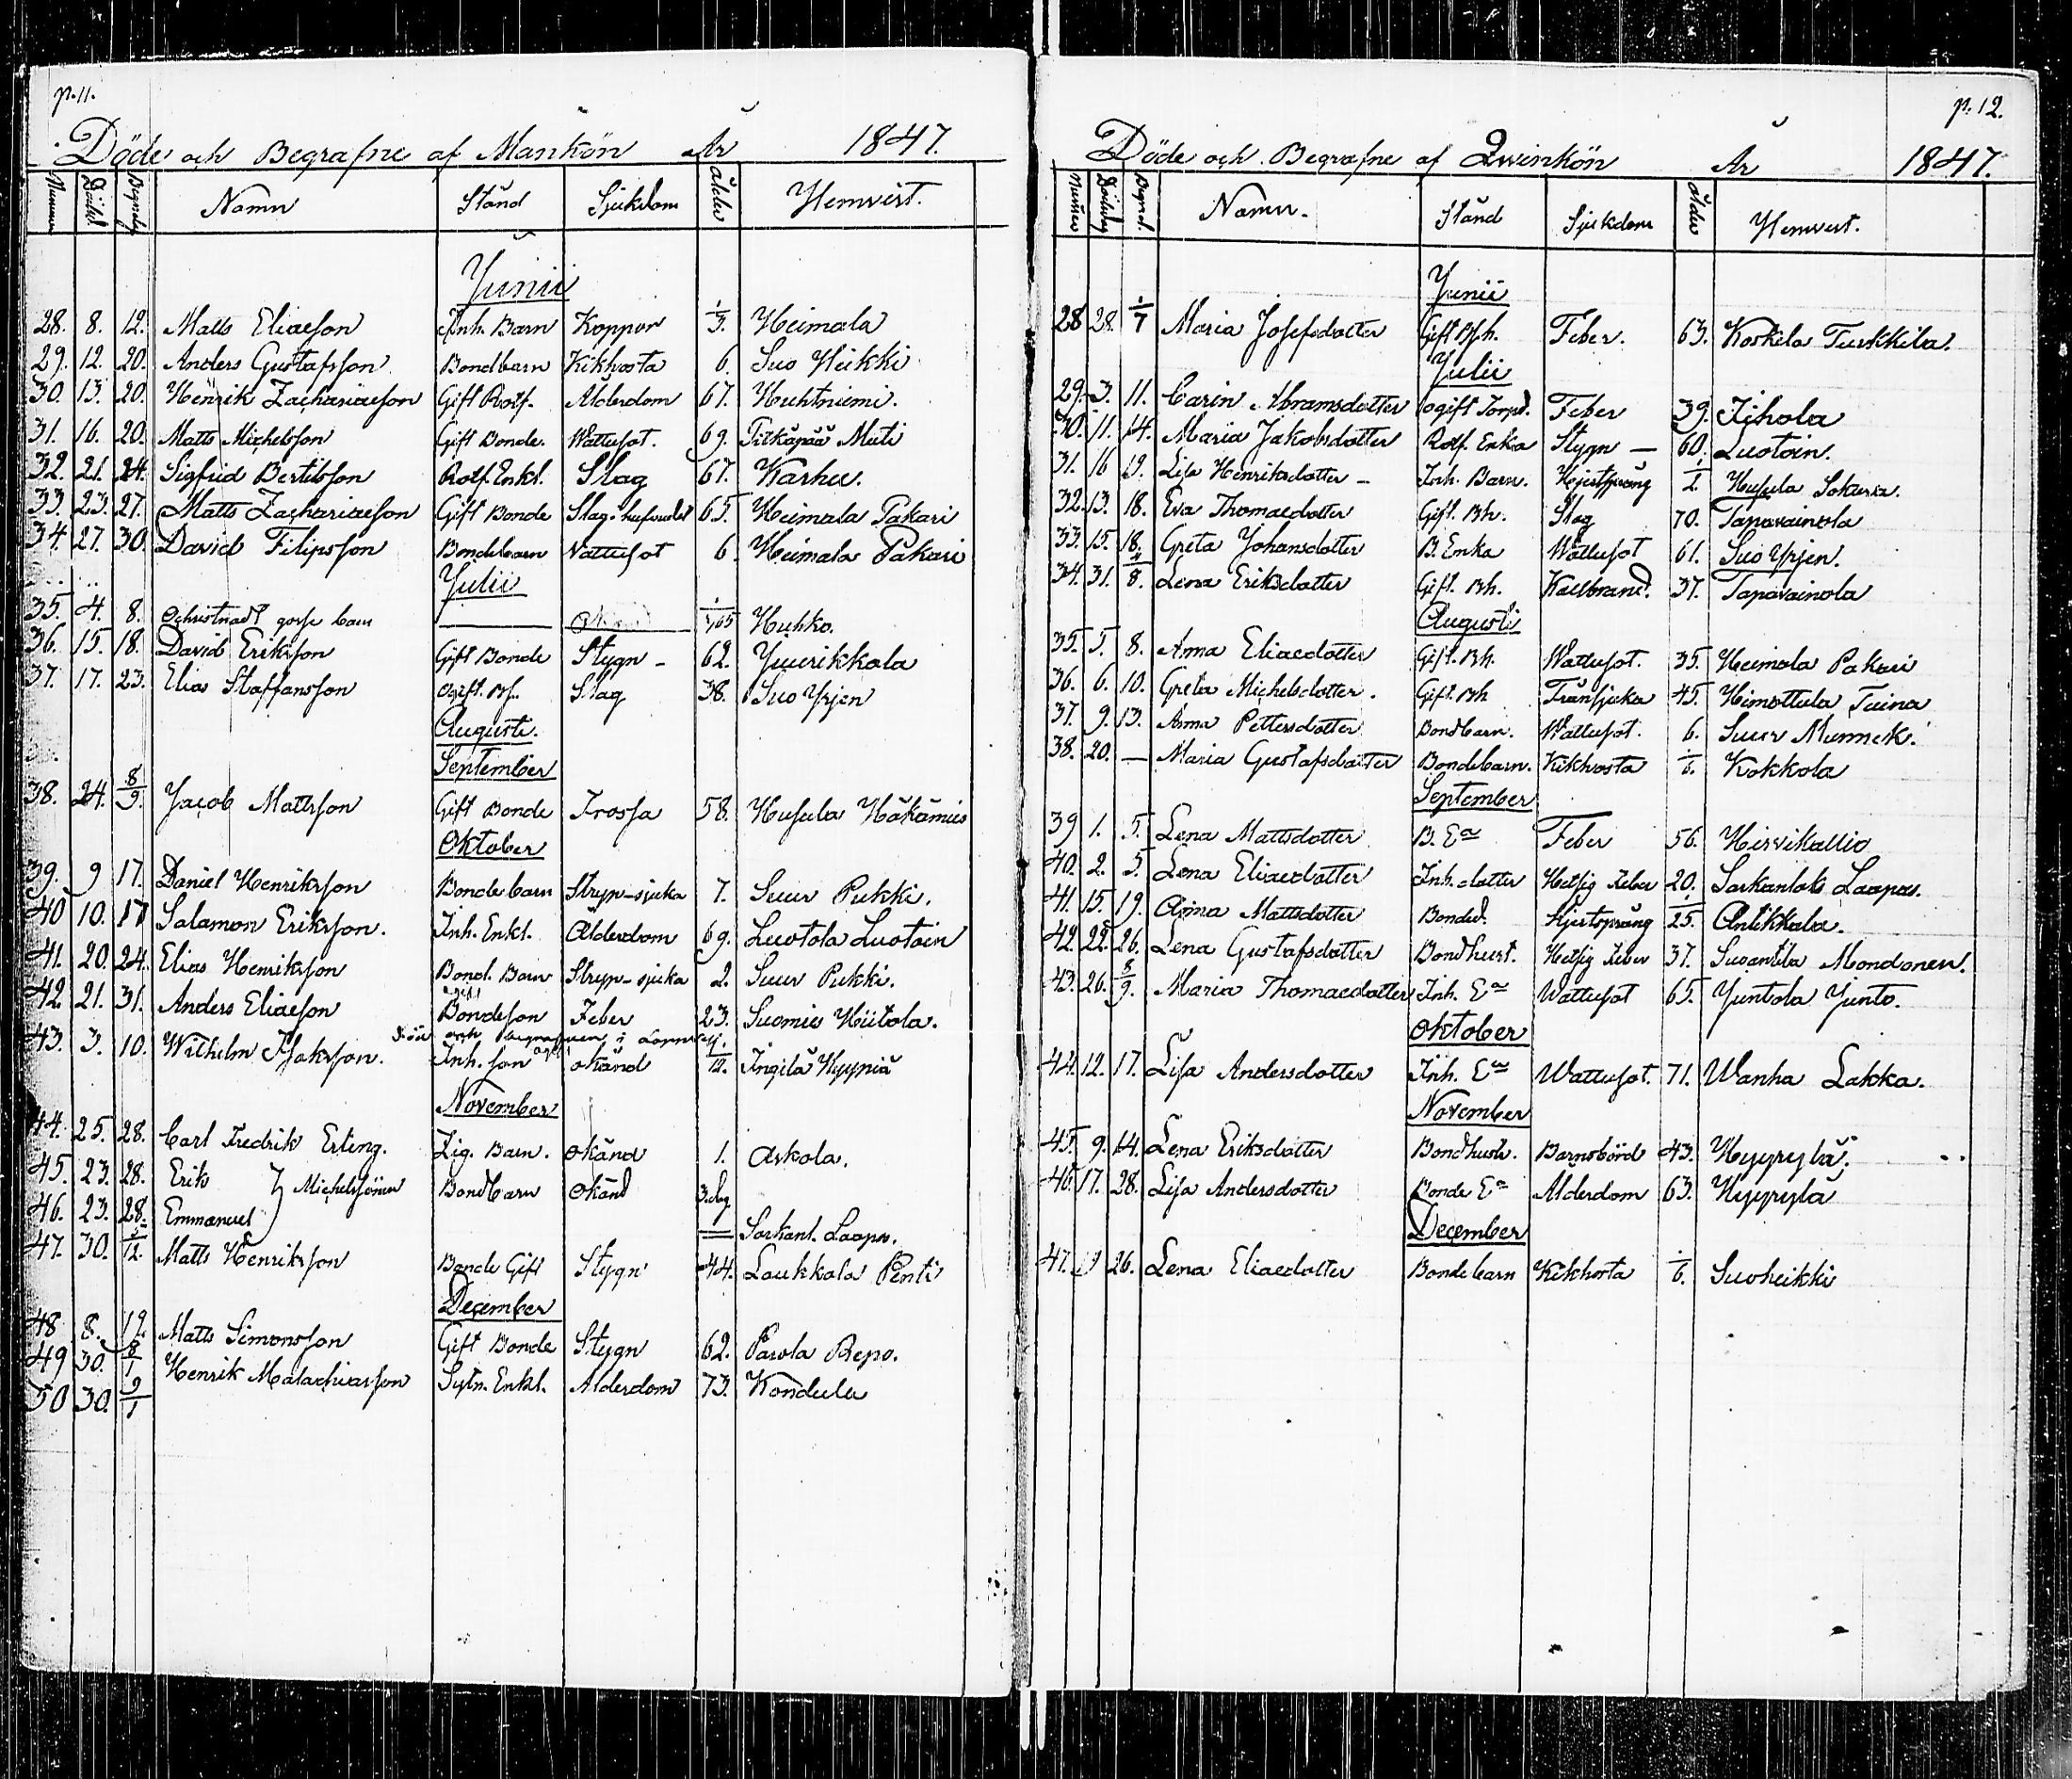 p. 11.
Döde och Begrafne af Mankön År 1847.
Nummer Död Begrafn Namn Stånd Sjukdom ålder Hemvist.
Junii
28. 8. 12. Matts Eliaeson Inh. Barn Koppor 1/3. Heimala
29. 12. 20. Anders Gustafsson Bondbarn Kikhosta 6. Suo Heikki
30. 13. 20. Henrik Zachariaeson Gift Rotf. Ålderdom 67. Huhtniemi.
31. 16. 20. Matts Michelsson Gift Bonde. Wattusot. 69. Pitkäpää Muti
32. 21. 24. Sigfrid Bertilsson Rotf. Enkl. Slag 67. Karhu.
33. 23. 27. Matts Zachariaeson Gift Bonde Slag 65. Heimala Pakari
34. 27. 30. David Filipsson Bondebarn Vattusot 6. Heimala Pakari
Julii
35. 4. 8. Ochristnadt gosse barn Huhko.
36. 15. 18. David Eriksson Gift Bonde Stygn - 62. Juurikkala
37. 17. 23. Elias Staffansson ogift. Bs. Slag 38. Suo Yrjen
Augusti.
September
38. 24. 8/9. Jacob Mattsson Gift Bonde Frossa 58. Husula Häkämies
Oktober
39. 9 17. Daniel Henriksson Bondebarn Stryp-sjuka 7. Suur Pukki.
40 10. 17 Salamon Eriksson. Inh. Enkl. Ålderdom 69. Luotola Luotoin
41. 20. 24. Elias Henriksson Bond. Barn Stryp-sjuka 2. Suur Pukki.
42. 21. 31. Anders Eliaeson Bondeson Feber 23. Suomies Hiitola.
43. 3. 10. Wilhelm Isaksson. Inh. son okänd Ingilä Hyypiä
November
44. 25. 28. Carl Fredrik Erling. Zig. Barn. okänd 1. Askola.
45. 23. 28. Erik } Michelssöner Bondbarn okänd 3. dag
46. 23. 28. Emmanuel Sarkant. Laapas.
47. 30. 5/12. Matts Henriksson Bonde Gift Stygn 44. Laukkala Penti
December
48 8. 12. Matts Simonsson Gift Bonde Stygn 62. Parola Repo.
49 30. 8/1 Henrik Malachiasson Sytn. Enkl. Ålderdom 73. Kondula
50 30. 9/1
p. 12.
Döde och Begrafne af Qwinkön År 1847.
Numer Dödsdag Begraf. Namn. Stånd Sjukdom ålder Hemvist.
Junii
28 28. 1/7 Maria Josefsdotter Gift Bh. Feber. 63. Koskela Turkkila.
Julii
29. 3. 11. Carin Abramsdotter ogift Torpd. Feber 39. Tihola
30. 11. 14. Maria Jakobsdotter Rotf. Enka Stygn — 60. Luotoin.
31. 16 19. Lisa Henriksdotter - Inh. Barn. Hjertsprång Husula Sakura.
32. 13. 18. Eva Thomaedotter Gift. Bh. Slag 70. Tapavainola
33. 15. 18. Greta Johansdotter B. Enka Wattusot 61. Suo Yrjen.
34. 31. 8. Lena Eriksdotter Gift. Bh. Kallbrand. 37. Tapavainola
Augusti
35. 5. 8. Anna Eliaedotter Gift. Bh. Wattusot. 35. Heimola Pakari
36. 6. 10. Greta Michelsdotter. Gift. Bh Trånsjuka 45. Himottula Tuina
37. 9. 13. Anna Pettersdotter Bondbarn. Wattusot. 6. Suur Munnek.
38. 20. — Maria Gustafsdotter Bondebarn. Kikhosta 1/6. Kokkola
September
39 1. 5. Lena Mattsdotter B. Ea Feber 56. Hirvikallio
40. 2. 5. Lena Eliaedotter Inh. dotter Hetsig Feber 20. Sarkantak Laapas.
41. 15. 19. Anna Mattsdotter Bonded. Hjertsprång 25. Antikkala.
42. 22. 26. Lena Gustafsdotter Bondhust. Hetsig Feber 37. Suoantila Mondonen.
43. 26. Maria Thomaedotter Inh. Ea Wattusot 65. Juntola Junto.
Oktober
44. 12. 17. Lisa Andersdotter Inh. Ea Wattusot. 71. Wanha Lakka.
November
45. 9. 14. Lena Eriksdotter Bondhustr. Barnsbörd 43. Hyyrylä.
46. 17. 28. Lisa Andersdotter Bonde Ea Ålderdom 63. Hyyrylä
December
47. 19 26. Lena Eliaedotter Bondebarn Kikhosta 1/6. Suoheikki